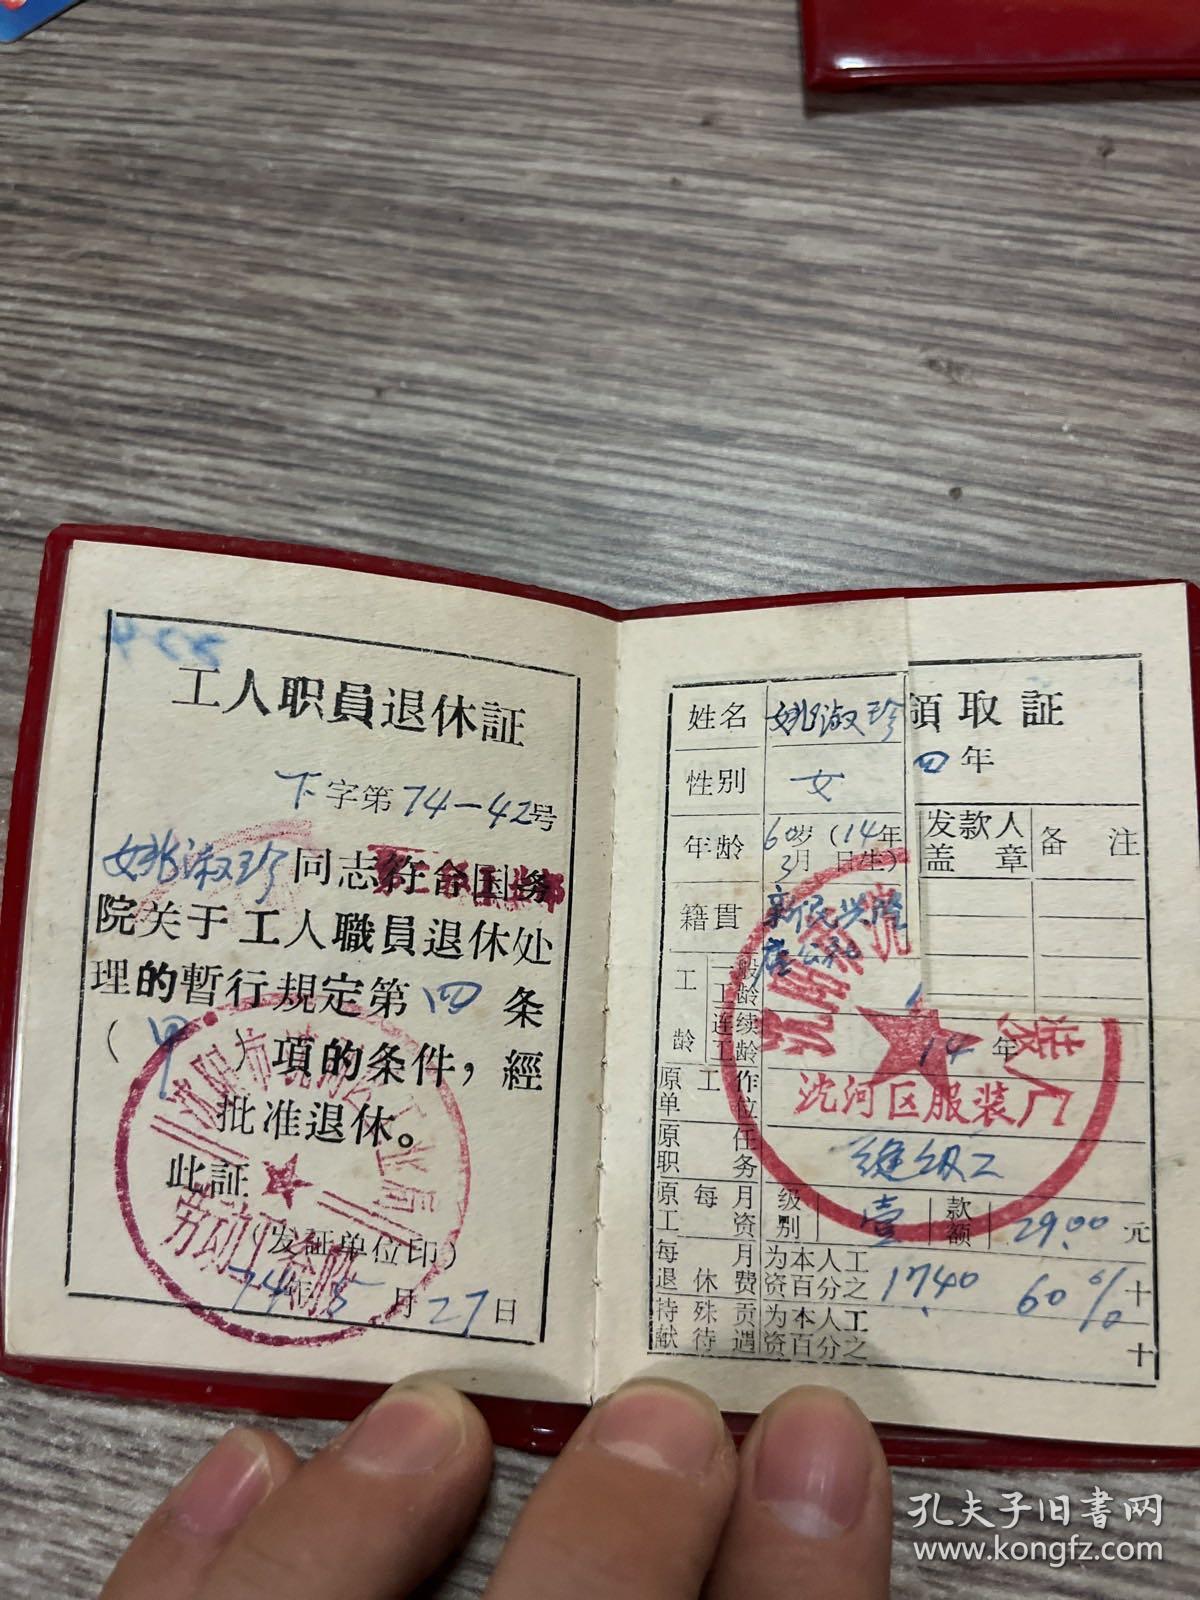 工人职員退休証
下字第74—42号
姚淑珍同志符合国务
院关于工人職員退休处
理的暫行規定第四条
（甲）項的条件，經
批准退休。
此証
（发証单位印）
74年5月27日
劳动工资
領取証
四年
发款人
盖章
备注
姓名 姚淑珍
性别 女
年龄 60岁（14年
3月 日生）
籍貫 新民兴隆
公社
工龄
一般工龄
连续工龄 14年
原工作单位 沈河区服装厂
原任职务 缝纫工
原每月工资 级别 壹 款额 29.00元
每月退休费 为本人工资百分之 17.40 60% 十
特殊贡献待遇 为本人工资百分之 十
孔夫子旧书网
www.kongfz.com